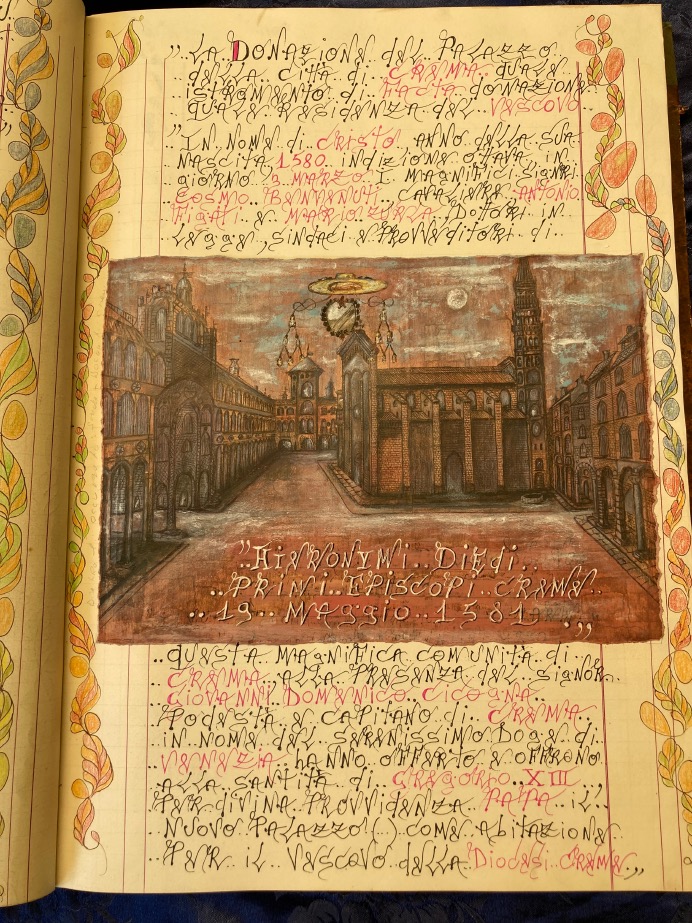 "LA DONAZIONE DEL PALAZZO
DELLA CITTÀ DI CREMA QUALE
ISTRUMENTO DI FACTA DONAZIONE
QUALE RESIDENZA DEL VESCOVO
"IN NOME DI CRISTO, ANNO DELLA SUA
NASCITA 1580 INDIZIONE OTTAVA, IN
GIORNO 9 MARZO I MAGNIFICI SIGNRI
COSMO BENVENUTI, CAVALIERE ANTONIO
FIGATI & MARIO ZURLA, DOTTORI IN
LEGGE, SINDACI E PROVVEDITORI DI..
"HIERONYMI..DIEDI..
..PRIMI..EPISCOPI..CREME..
..19..MAGGIO..1581..,,
..QUESTA MAGNIFICA COMUNITÀ DI..
CREMA ALLA PRESENZA DEL SIGNOR..
GIOVANNI DOMENICO CICOGNA
PODESTÀ E CAPITANO DI..CREMA..
IN NOME DEL SERENISSIMO DOGE DI
VENEZIA..HANNO OFFERTO E OFFRONO
ALLA SANTITÀ DI..GREGORIO..XIII..,,
PER DIVINA PROVVIDENZA PAPA IL..
NUOVO PALAZZO(..) COME ABITAZIONE
PER IL VESCOVO DELLA DIOCESI CREMA..,,